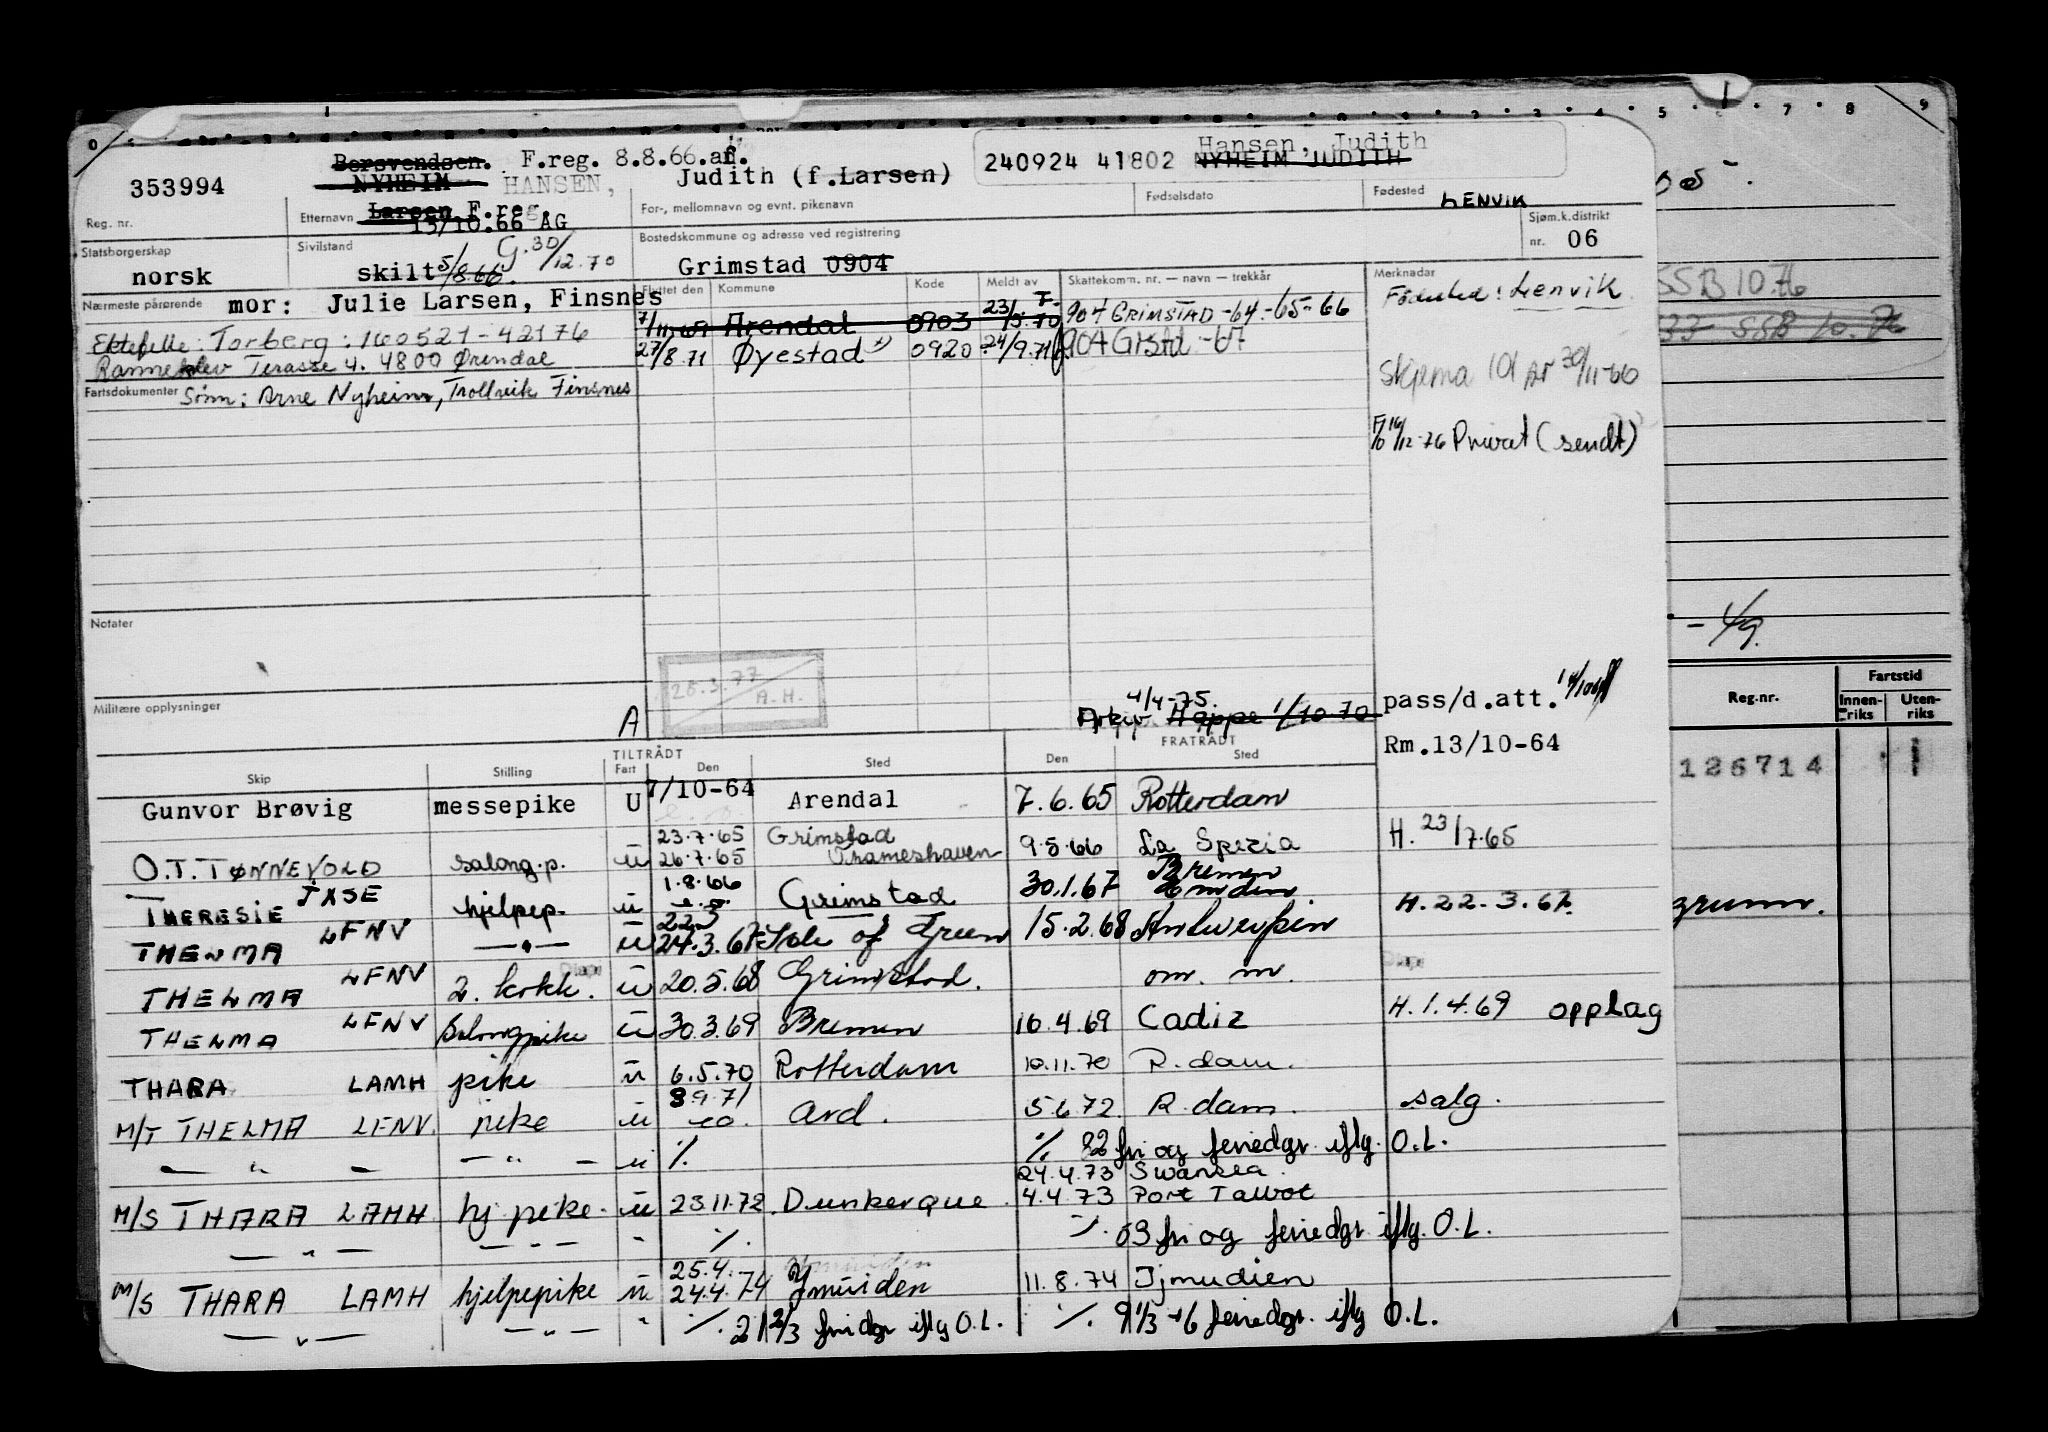 Borsvendsen. F.reg. 8.8.66. an.
353994 NYHEIM HANSEN, Judith (f. Larsen)
240924 41802 Hansen, Judith
NYHEIM JUDITH
Reg. nr.
Etternavn Larsen F.reg.
13/10.66 AG
For-, mellomnavn og evnt. pikenavn
Fødselsdato
Fødested LENVIK
Statsborgerskap
norsk
Sivilstand
skilt 5/8.66. G. 30/12.70
Bostedskommune og adresse ved registrering
Grimstad 0904
Sjøm.k.distrikt
nr. 06
Nærmeste pårørende mor: Julie Larsen, Finsnes
Ektefelle: Torberg: 160521-42176
Terasse 4. 4800 Arendal
Flyttet den Kommune Kode Meldt av Skattekomm. nr. — navn — trekkår
Arendal 0903 23/5.70 904 GRIMSTAD -64-65-66
27/8.71 Øyestad 0920 24/9.71 904 Grstd -67
Merknader
Fødested: Lenvik
Skjema 101 AR 30/11-66
12-76 Privat (sendt)
Fartsdokumenter Sønn: Arne Nyheim, Trollvik Finsnes
Notater
Militære opplysninger
A
28.3.77
A.H.
4/4-75.
Arkiv. Hoppe 1/10-70
pass/d.att.
Rm.13/10-64
Skip Stilling TILTRÅDT Fart Den Sted FRATRÅDT Den Sted
Gunvor Brøvig messepike U 7/10-64 Arendal 7.6.65 Rotterdam
O.T. TØNNEVOLD salong.p. u 23.7.65 Grimstad
26.7.65 9.5.66 La Spezia H. 23/7.65
THERESIE JXSE hjelpep. u 1.8.66 Grimstad 30.1.67 Bremen
Emden
THELMA LFNV —"— u 24.3.67 Isle of Green 15.2.68 Antwerpen H. 22.3.67.
THELMA LFNV 2. kokk. u 20.5.68 Grimstad. om. m.
THELMA LFNV Salongpike u 30.3.69 Bremen 16.4.69 Cadiz H.1.4.69 opplag
THARA LAMH pike u 6.5.70 Rotterdam 10.11.70 R.dam.
M/T THELMA LFNV. pike u 8.9.71 Ard. 5.6.72. R.dam. salg.
— " — — " — u ./. ./. 22 fri og feriedgr. iflg. O.L.
24.4.73 Swansea.
M/S THARA LAMH. hj.pike. u 23.11.72. Dunkerque. 4.4.73 Port Talbot
— " — — " — " ./. ./. 53 fri og feriedgr. iflg. O.L.
25.4.
M/S THARA LAMH hjelpepike u 24.4.74 Ymuiden 11.8.74 Ijmudien
— " — — " — " ./. 21 2/3 fridgr iflg O.L. ./. 9 1/3 + 6 feriedgr. iflg O.L.
SSB 10.76
Reg.nr.
Fartstid
Innen-
riks
Uten-
riks
126714